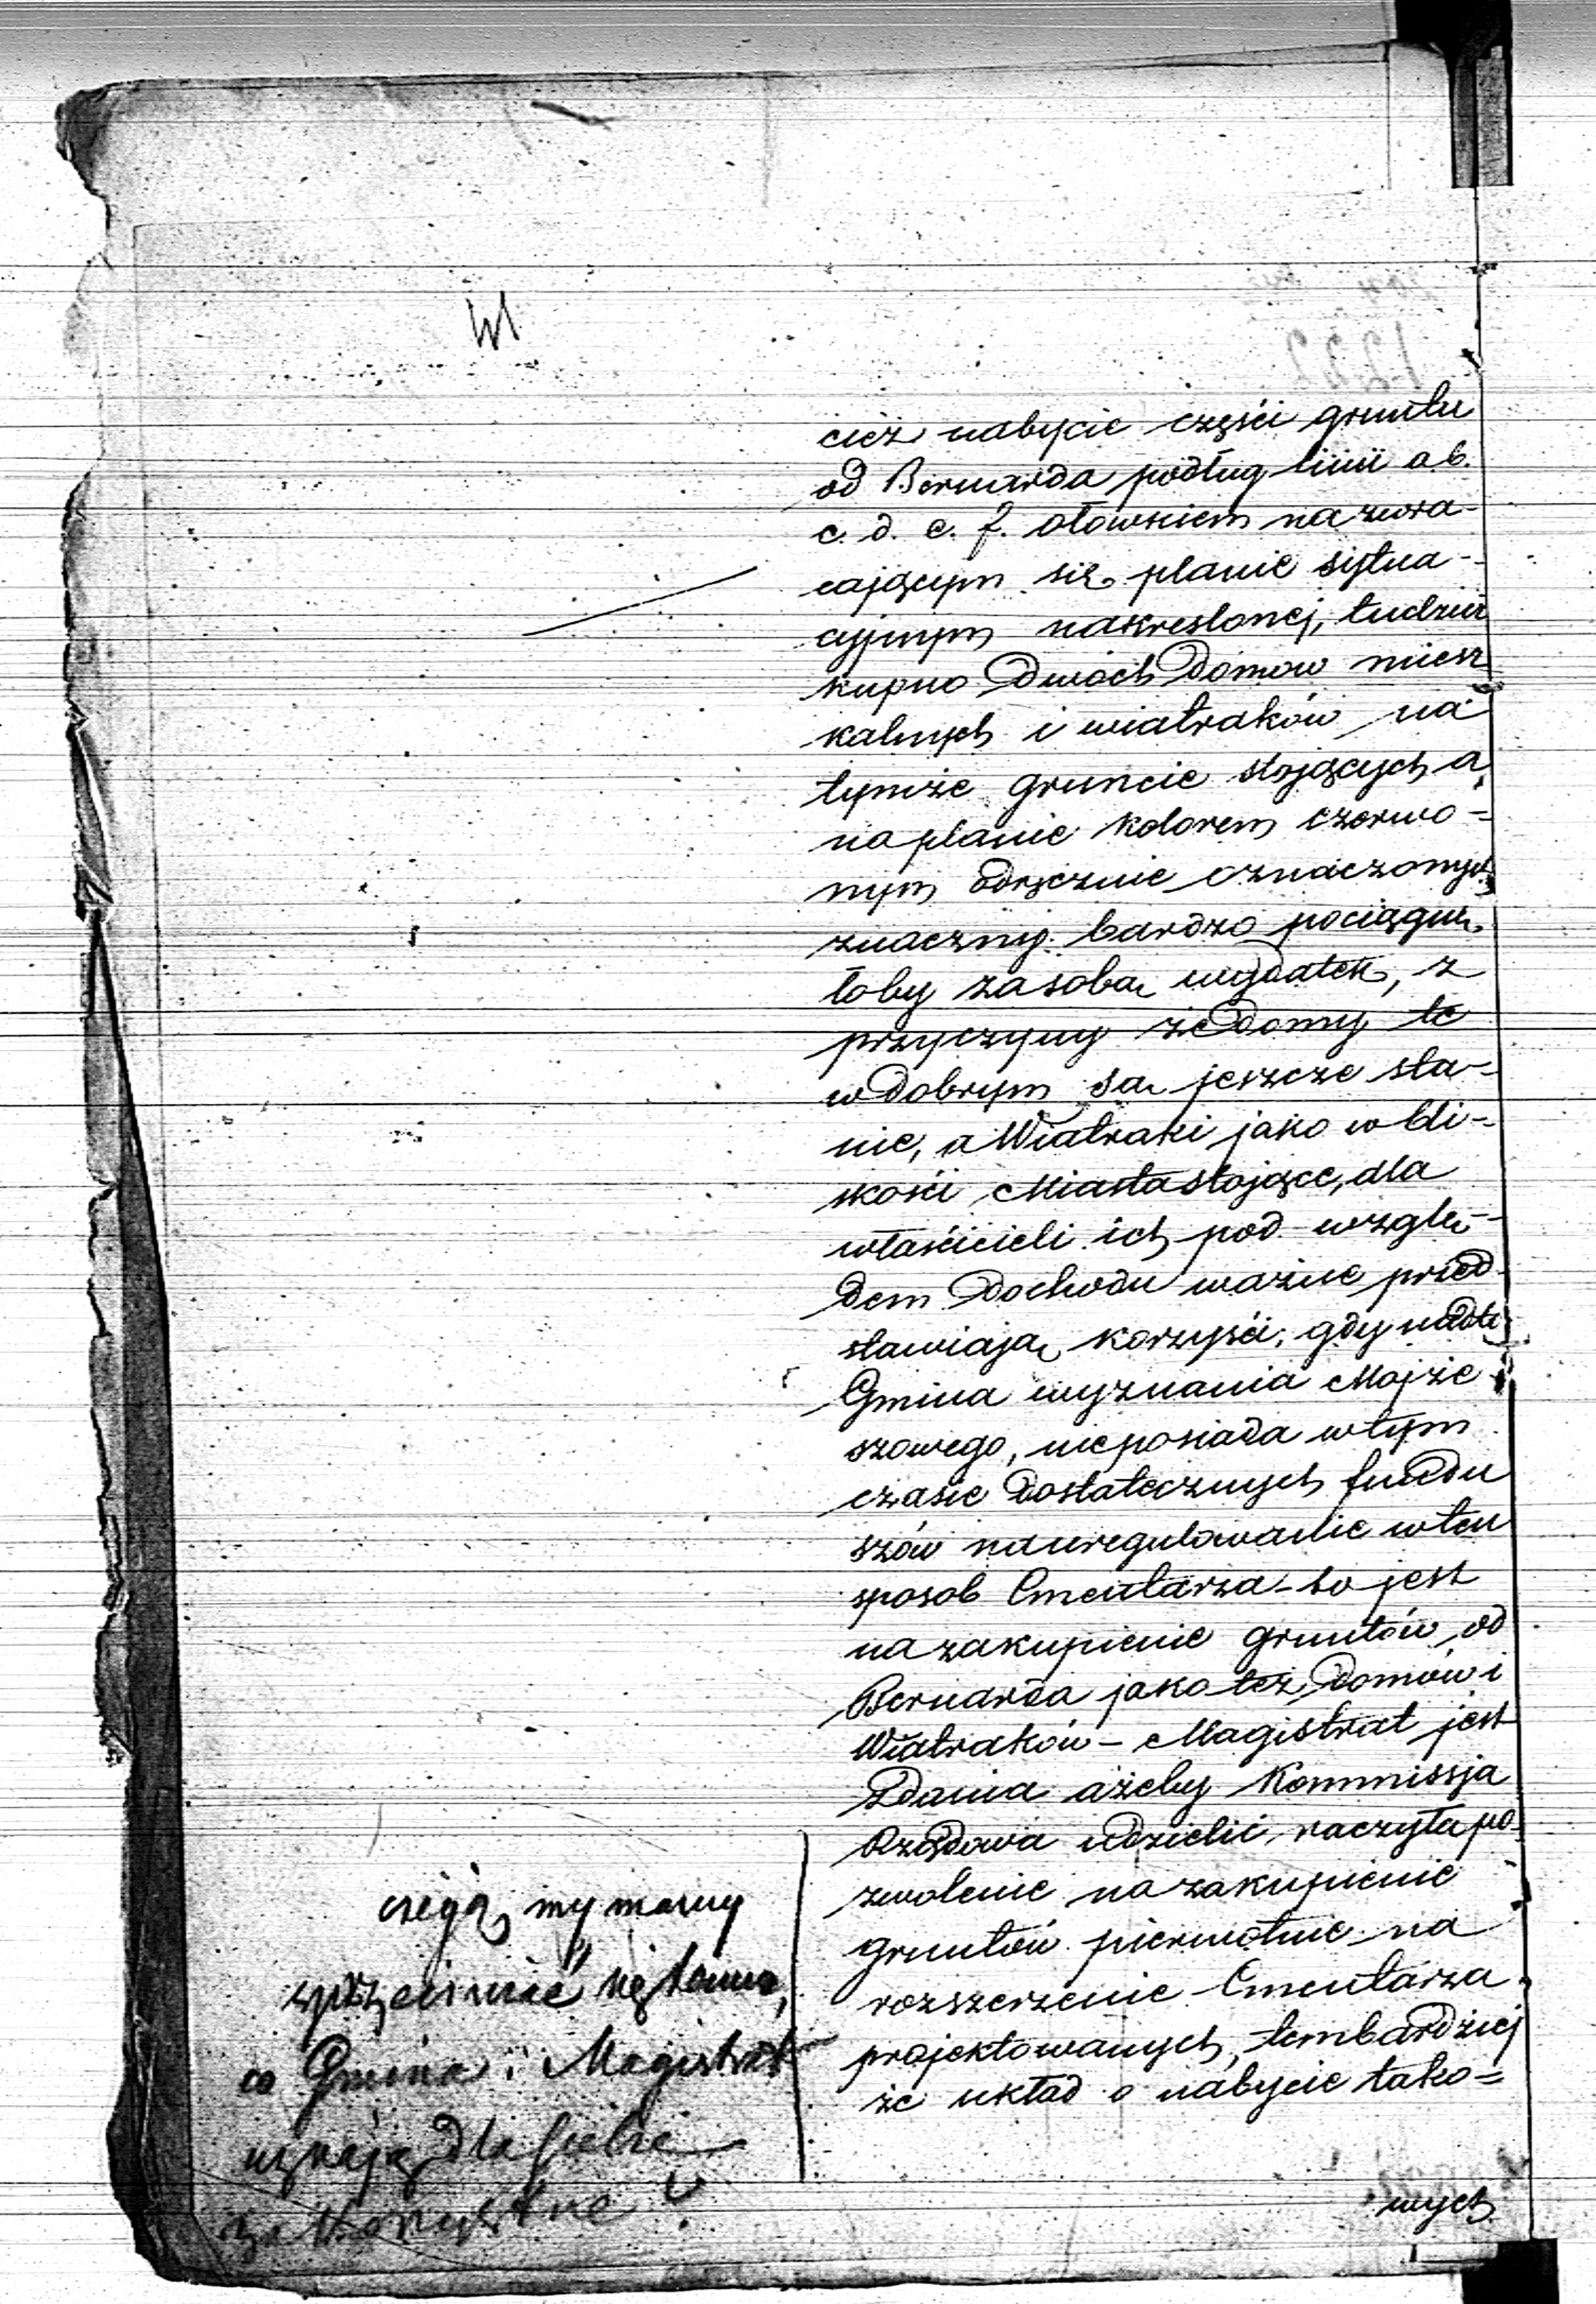 cież nabycie części gruntu
od Bernarda podług linii a.b.
c. d. e. f. ołowkiem na zwra-
cającym się planie sytua-
cyjnym nakreslonej, tudzież
kupno dwóch domow miesz
kalnych i wiatraków na
tymże gruncie stojących a
na planie kolorem czerwo=
nym odręcznie oznaczonych
znaczny bardzo pociągnę-
łoby za sobą wydatek, z
przyczyny że domy te
w dobrym są jeszcze sta-
nie, a Wiatraki jako w bli-
skości Miasta stojące, dla
właścicieli ich pod wzglę-
dem dochodu ważne przed
stawiają korzyści, gdy nadto
Gmina wyznania Mojże
szowego, nieposiada w tym
czasie dostatecznych fundu
szów na uregulowanie w ten
sposob Cmentarza - to jest
na zakupienie gruntów od
Bernarda jako też domów i
Wiatraków - Magistrat jest
zdania ażeby Kommissja
Rządowa udzielić raczyła po-
zwolenie na zakupienie
gruntów pierwotnie na
rozszerzenie Cmentarza
projektowanych, tembardziej
że układ o nabycie tako=
wych
my mamy
sprzeciwiać się temu,
co Gmina i Magistrat
uznają dla siebie
za korzystne ?